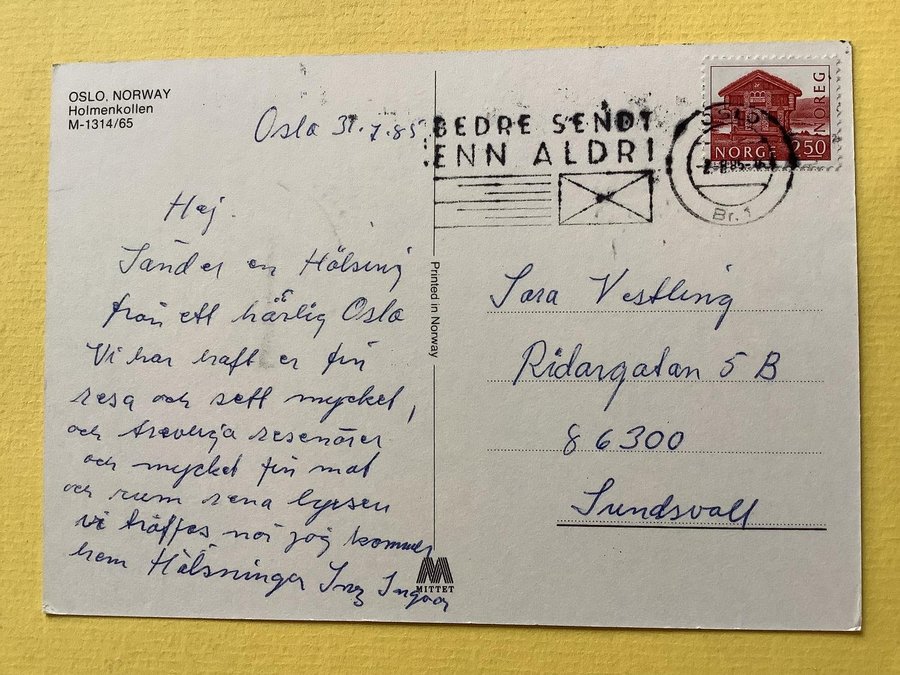 OSLO, NORWAY
Holmenkollen
M-1314/65
Oslo 31.7.85
BEDRE SENDT
ENN ALDRI
OSLO
Br. 1
NOREG
NORGE 250
Hej.
Sänder en Hälsing
från ett härlig Oslo
Vi har haft er fin
resa och sett mycket,
och trevliga resenärer
och mycket fin mat
och rum rena lyxsen
vi träffas när jag kommer
hem Hälsninger Ingvar
Printed in Norway
MITTET
Sara Vestling
Ridargatan 5 B
86300
Sundsvall